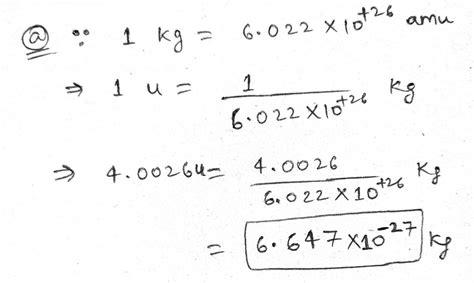 ⓐ ∵ 1 kg = 6.022 × 10⁺²⁶ amu
⇒ 1 u = 1 / 6.022 × 10⁺²⁶ kg
⇒ 4.0026u = 4.0026 / 6.022 × 10⁺²⁶ kg
= 6.647 × 10⁻²⁷ kg